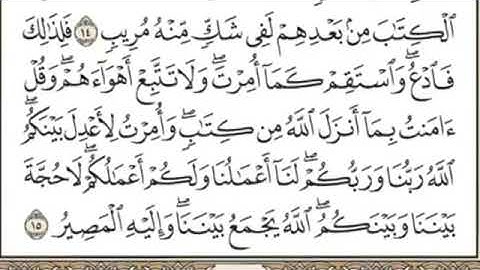 ٱلْكِتَٰبَ مِنۢ بَعْدِهِمْ لَفِى شَكٍّ مِّنْهُ مُرِيبٍ ١٤ فَلِذَٰلِكَ
فَٱدْعُ ۖ وَٱسْتَقِمْ كَمَآ أُمِرْتَ ۖ وَلَا تَتَّبِعْ أَهْوَآءَهُمْ ۖ وَقُلْ
ءَامَنتُ بِمَآ أَنزَلَ ٱللَّهُ مِن كِتَٰبٍ ۖ وَأُمِرْتُ لِأَعْدِلَ بَيْنَكُمُ ۖ
ٱللَّهُ رَبُّنَا وَرَبُّكُمْ ۖ لَنَآ أَعْمَٰلُنَا وَلَكُمْ أَعْمَٰلُكُمْ ۖ لَا حُجَّةَ
بَيْنَنَا وَبَيْنَكُمُ ۖ ٱللَّهُ يَجْمَعُ بَيْنَنَا ۖ وَإِلَيْهِ ٱلْمَصِيرُ ١٥